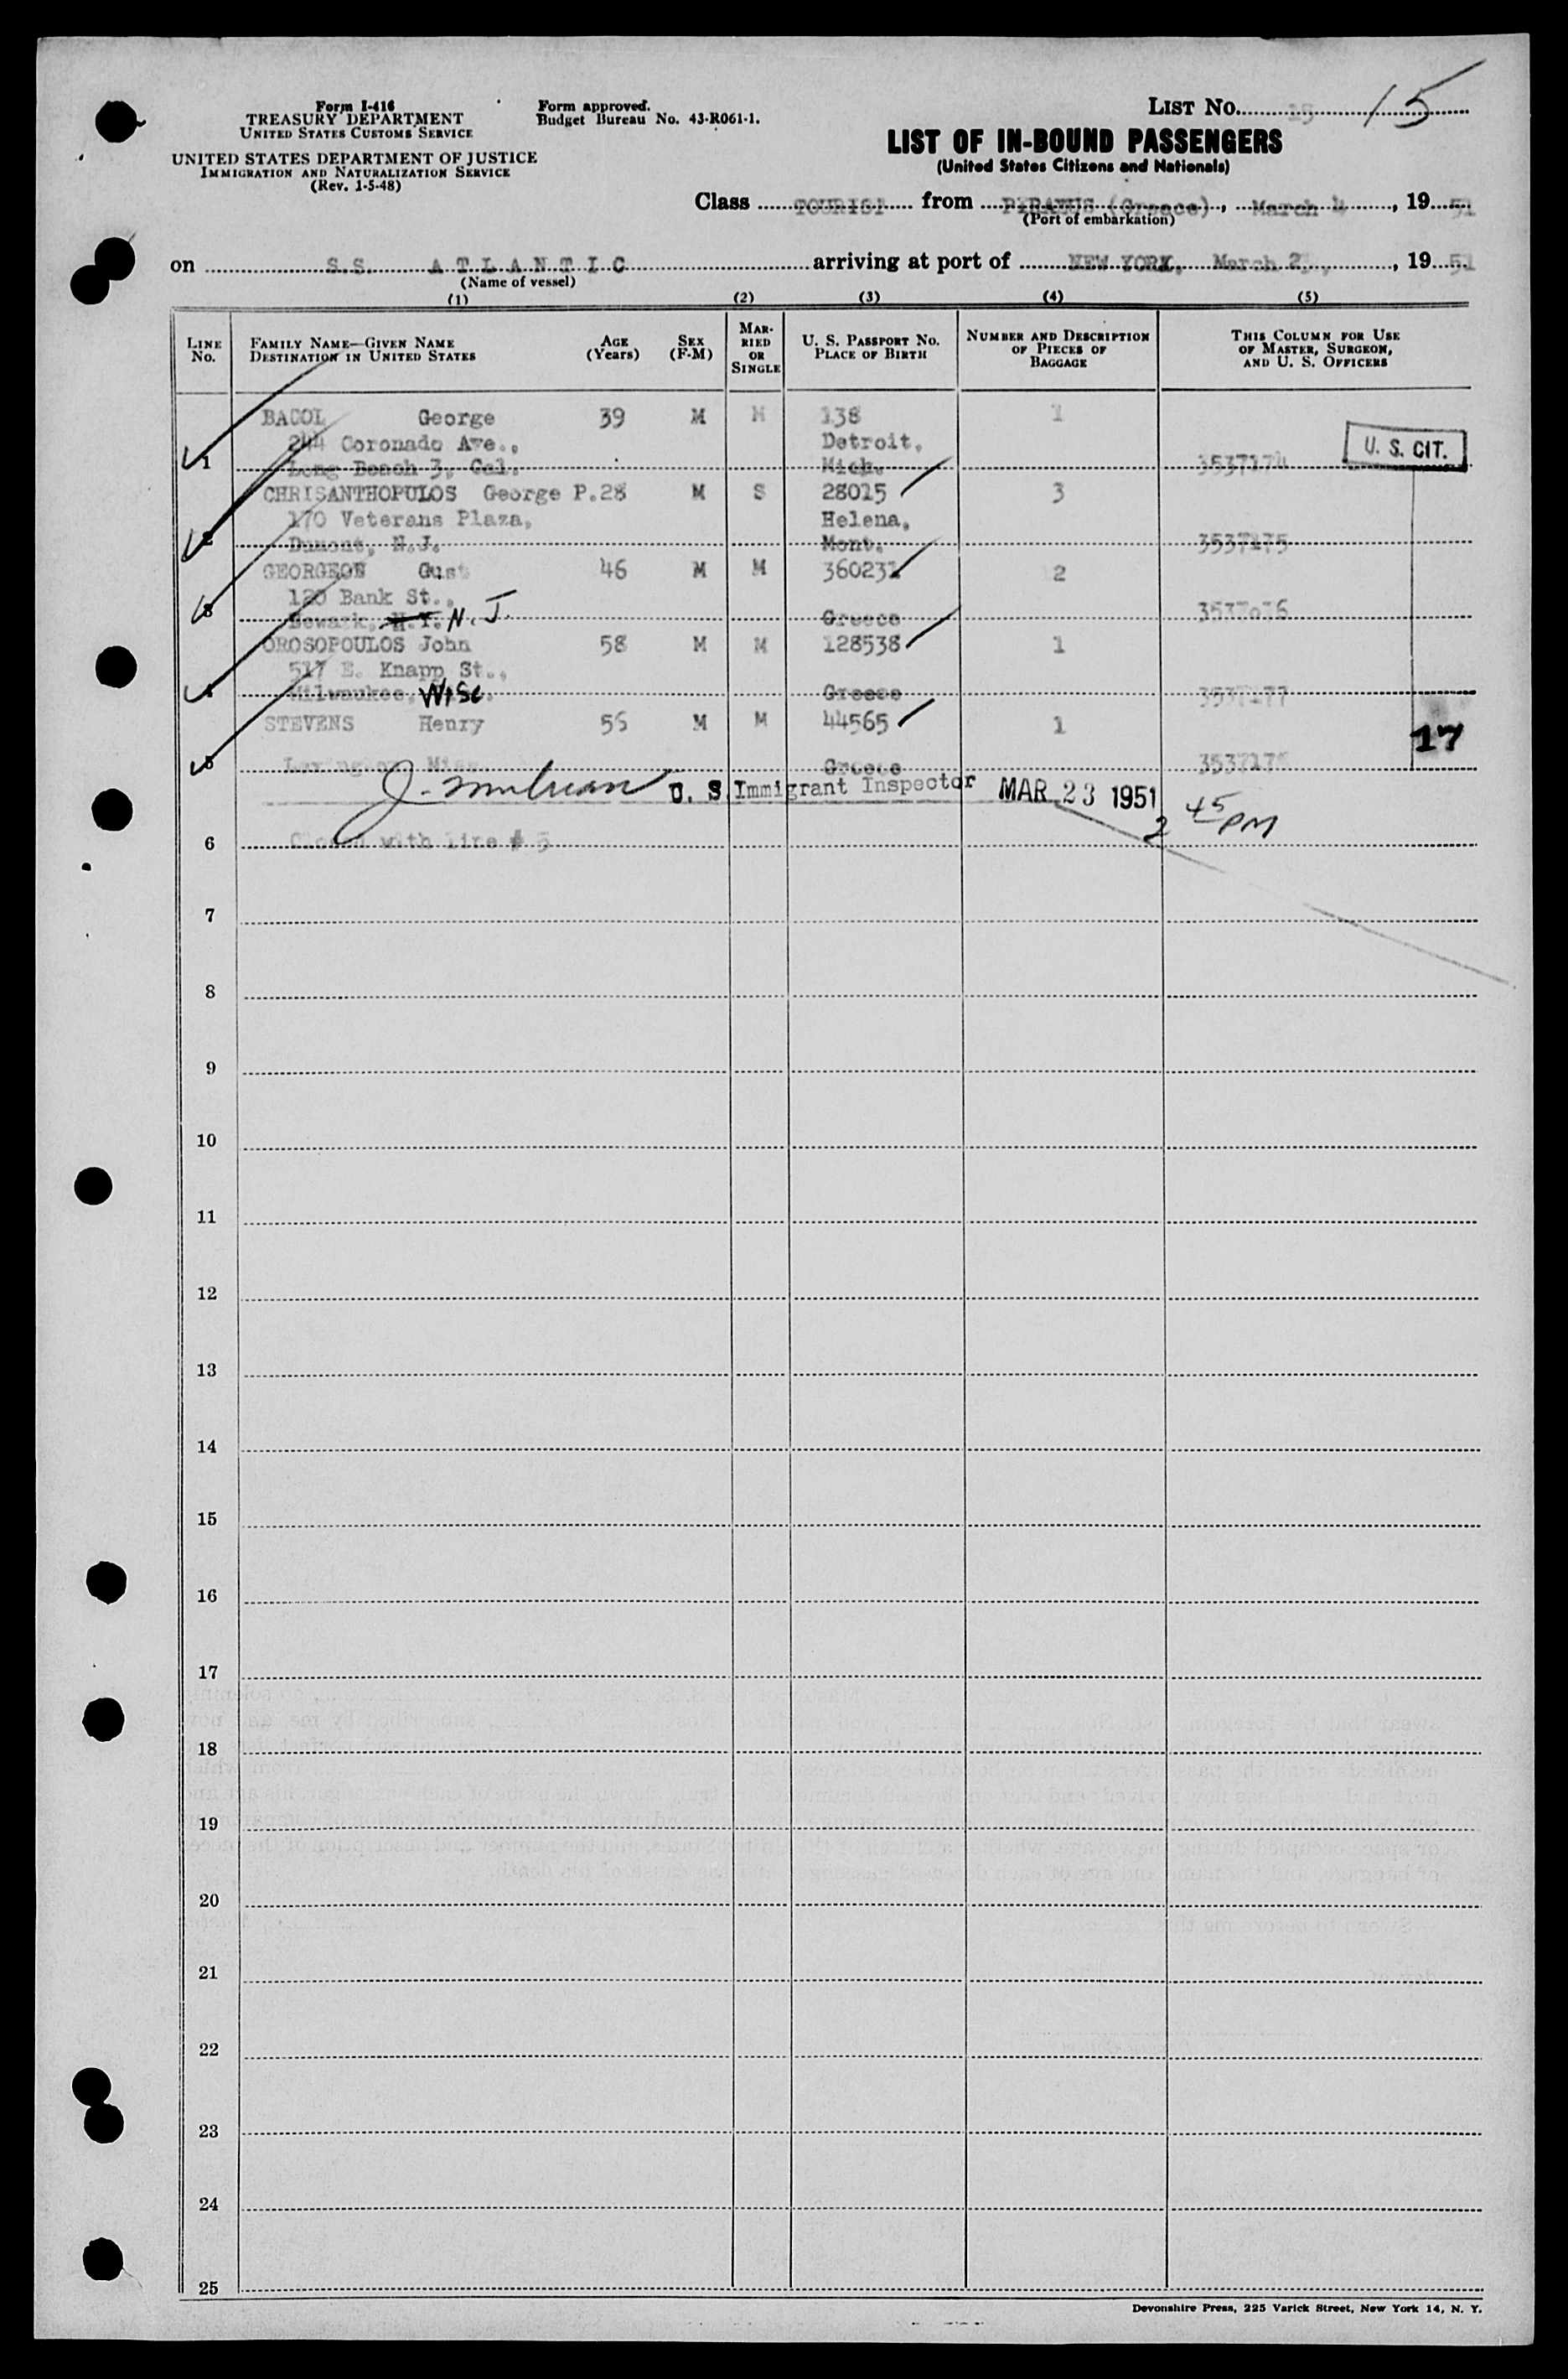 Form I-416
TREASURY DEPARTMENT
UNITED STATES CUSTOMS SERVICE
UNITED STATES DEPARTMENT OF JUSTICE
IMMIGRATION AND NATURALIZATION SERVICE
(Rev. 1-5-48)
Form approved.
Budget Bureau No. 43-R061-1.
LIST No. 15 15
LIST OF IN-BOUND PASSENGERS
(United States Citizens and Nationals)
Class TOURIST from PIRAEUS (Greece), March 4, 1951
(Port of embarkation)
on S.S. ATLANTIC arriving at port of NEW YORK, March 2, 1951
(Name of vessel)
(1) (2) (3) (4) (5)
LINE No. FAMILY NAME—GIVEN NAME DESTINATION IN UNITED STATES AGE (Years) SEX (F-M) MARRIED OR SINGLE U. S. PASSPORT NO. PLACE OF BIRTH NUMBER AND DESCRIPTION OF PIECES OF BAGGAGE THIS COLUMN FOR USE OF MASTER, SURGEON, AND U. S. OFFICERS
BACOL George 39 M M 138 1
244 Coronado Ave., Detroit, U. S. CIT.
1 Long Beach 3, Cal. Mich. 3537174
CHRISANTHOPULOS George P. 28 M S 28015 3
170 Veterans Plaza, Helena,
2 Dumont, N.J. Mont. 3537175
GEORGEON Gust 46 M M 360231 2
120 Bank St.,
3 Newark, N.Y. N.J. Greece
OROSOPOULOS John 58 M M 128538 1
517 E. Knapp St.,
4 Milwaukee, Wisc. Greece 3537177
STEVENS Henry 56 M M 44565 1 17
5 Greece
U. S. Immigrant Inspector MAR 23 1951 2 45 PM
6 Closed with line # 5
7
8
9
10
11
12
13
14
15
16
17
18
19
20
21
22
23
24
25
Devonshire Press, 225 Varick Street, New York 14, N. Y.